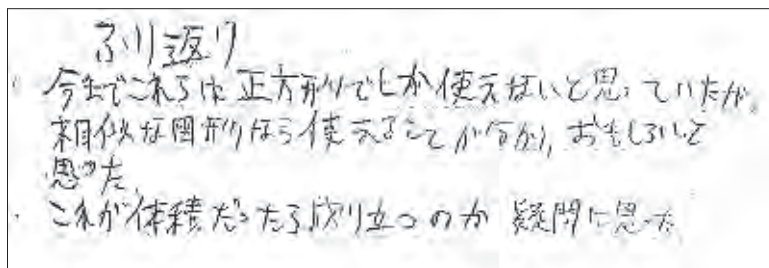 ふり返り
・今までこれらは正方形でしか使えないと思っていたが、
相似な図形なら使えることが分かり、おもしろいと
思った。
・これが体積だったら成り立つのか疑問に思った